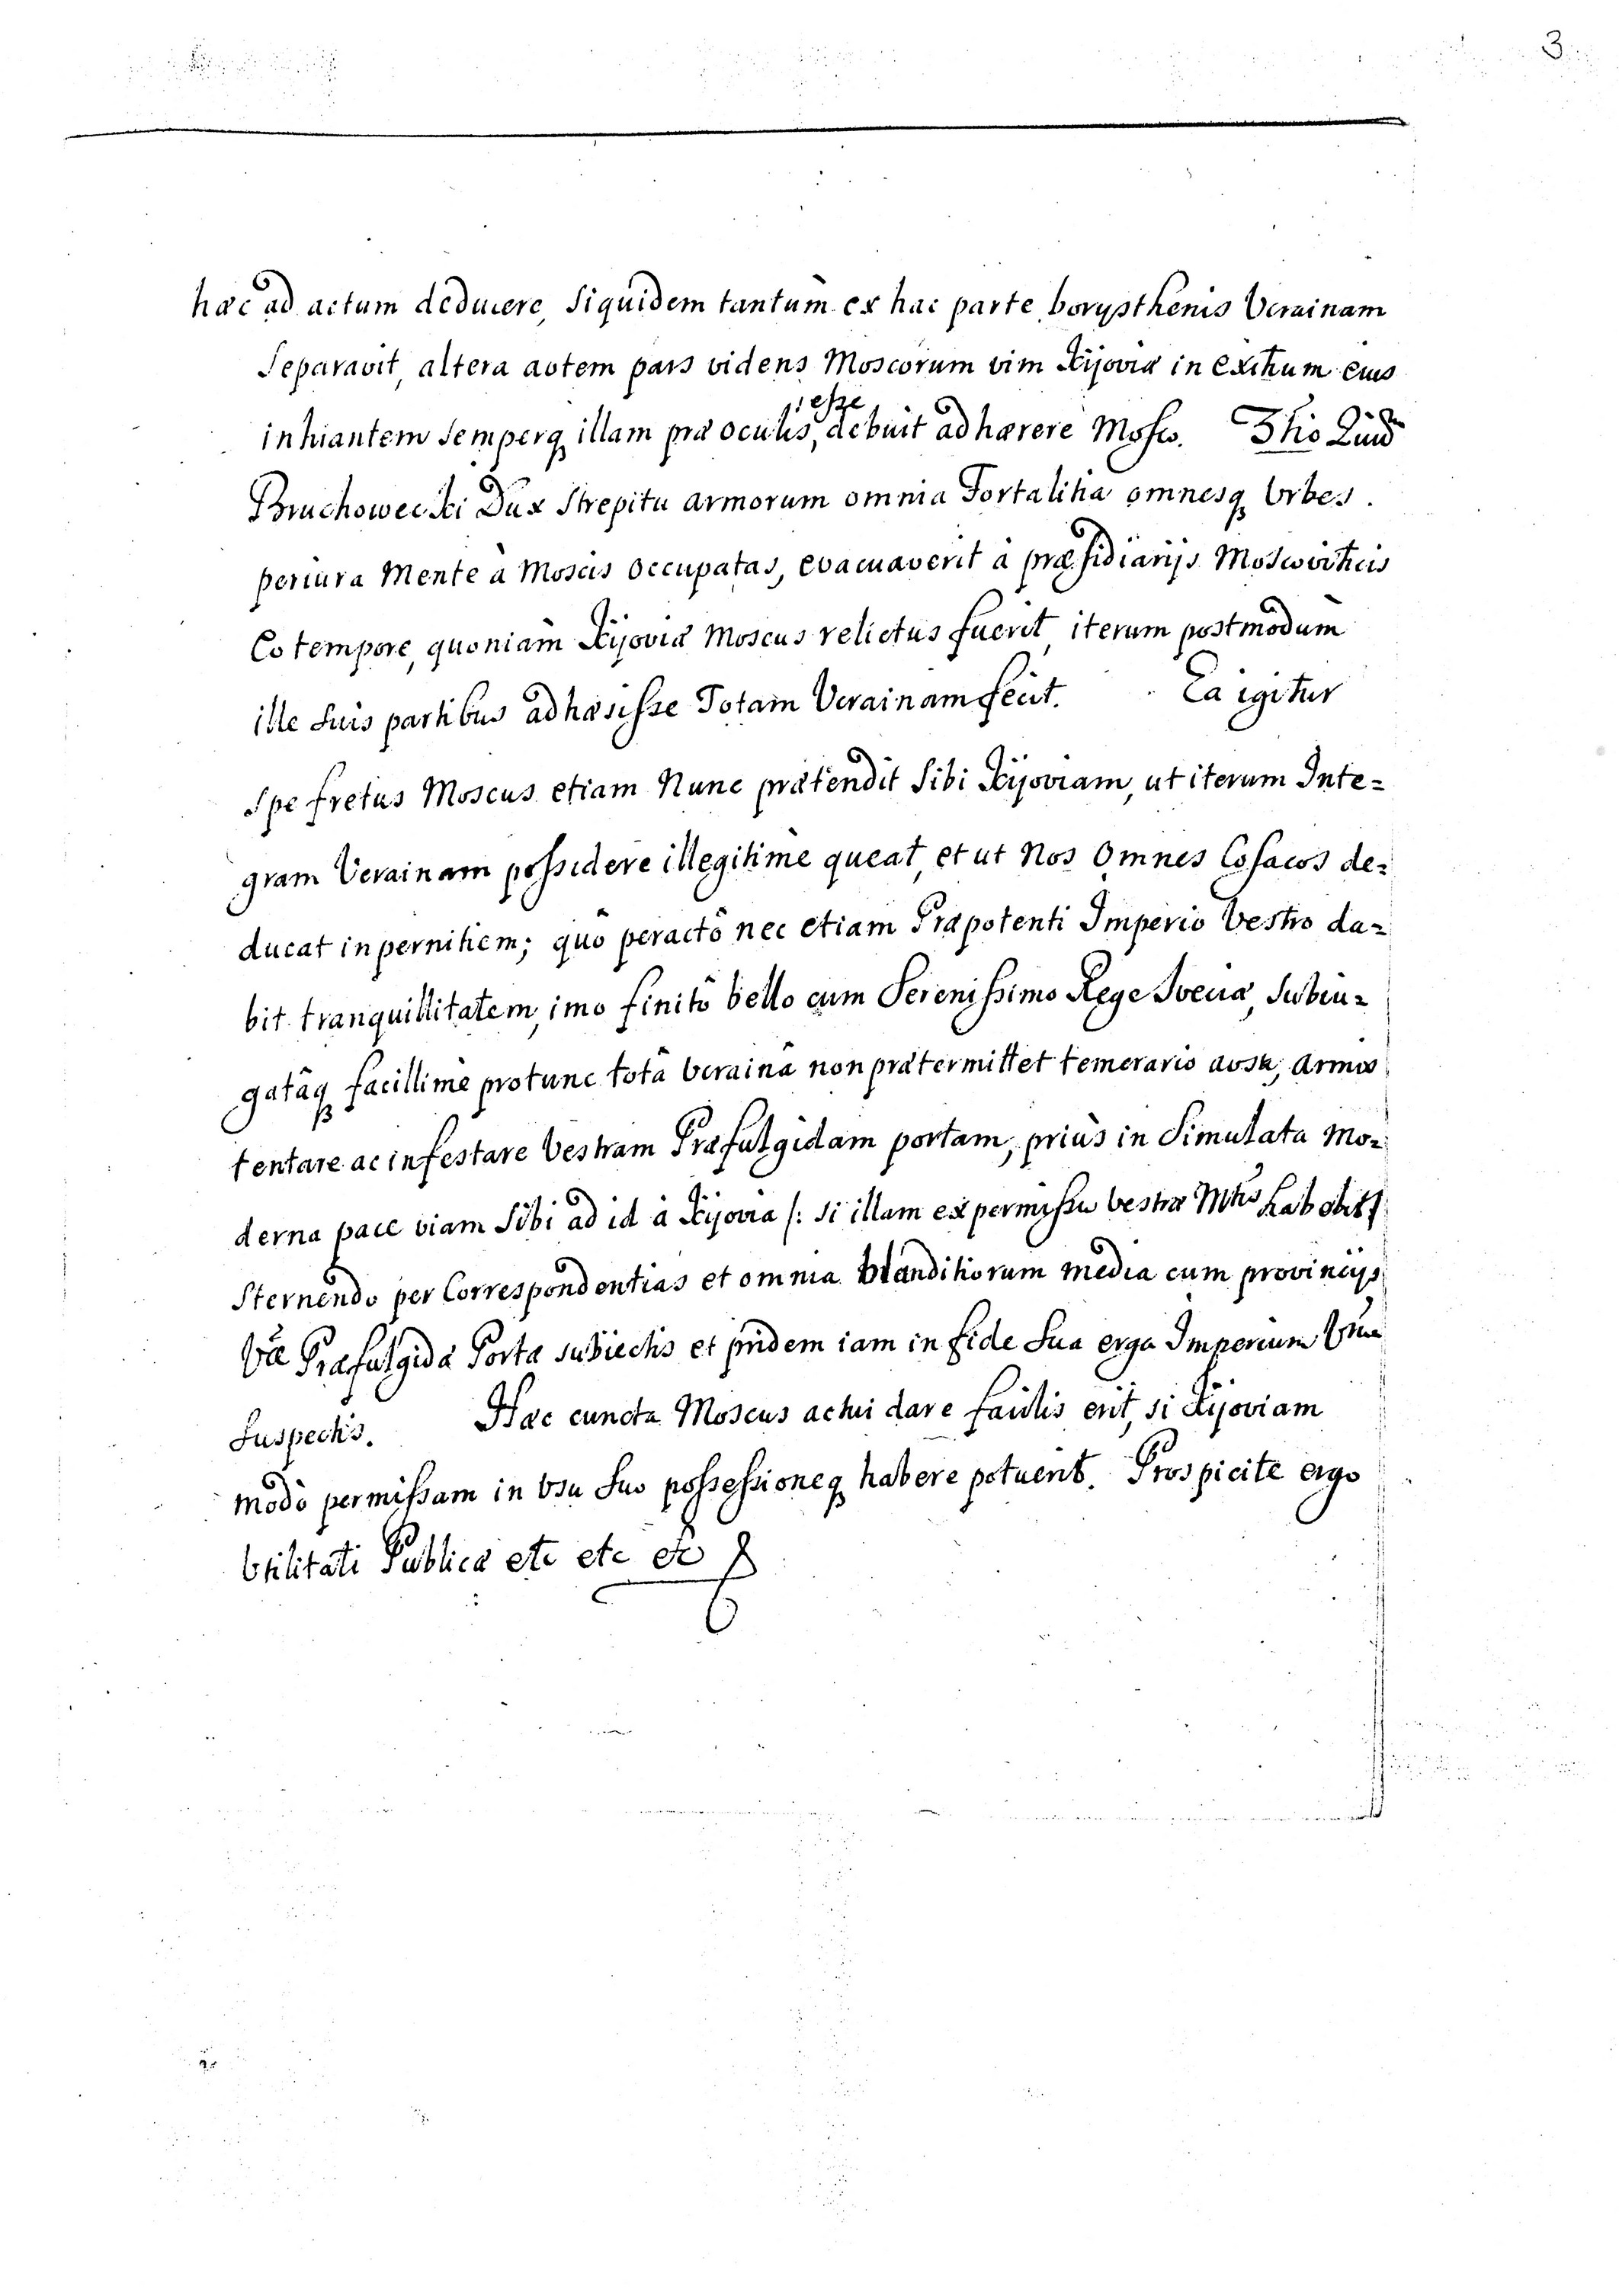 3
hæc ad actum deducere, siquidem tantùm ex hac parte borysthenis Vcrainam
Separavit, altera autem pars videns Moscorum vim Kijoviæ in exitium eius
esse
inhiantem semperq illam præ oculis, debuit adhærere Mosco.
Bruchowecki Dux Strepitu armorum omnia Fortalitia omnesq Vrbes.
periura Mente à Moscis occupatas, evacuaverit à præsidiarijs Moscoviticis
Eo tempore, quoniam Kijoviæ Moscus relictus fuerit, iterum postmodùm
ille suis partibus adhæsisse Totam Vcrainam fecit. Ea igitur
Spe fretus Moscus etiam Nunc prætendit sibi Kijoviam, ut iterum Inte=
gram Vcrainam possidere illegitime queat, et ut Nos Omnes Cosacos de=
ducat in pernitiem; quô peractô nec etiam Præpotenti Imperio Vestro da=
bit tranquillitatem, imo finitô bello cum Serenissimo Rege Sveciæ, Subiu=
gatâq facillimè protunc totâ Vcrainâ non prætermittet temerario ausu, armis
tentare ac infestare Vestram Præfulgidam portam, priùs in Simulata Mo=
derna pace viam Sibi ad id à Kijovia /: si illam ex permissu Vestræ Mtis
Sternendo per Correspondentias et omnia blanditiorum media cum provincijs
Væ Præfulgidæ Portæ subiectis et pridem iam in fide Sua erga Imperium Vrum
Suspectis. Hæc cuncta Moscus actui dare facilis erit, si Kijoviam
modò permissam in Vsu Suo possessioneq habere potuerit. Prospicite ergo
Vtilitati Publicæ etc etc etc